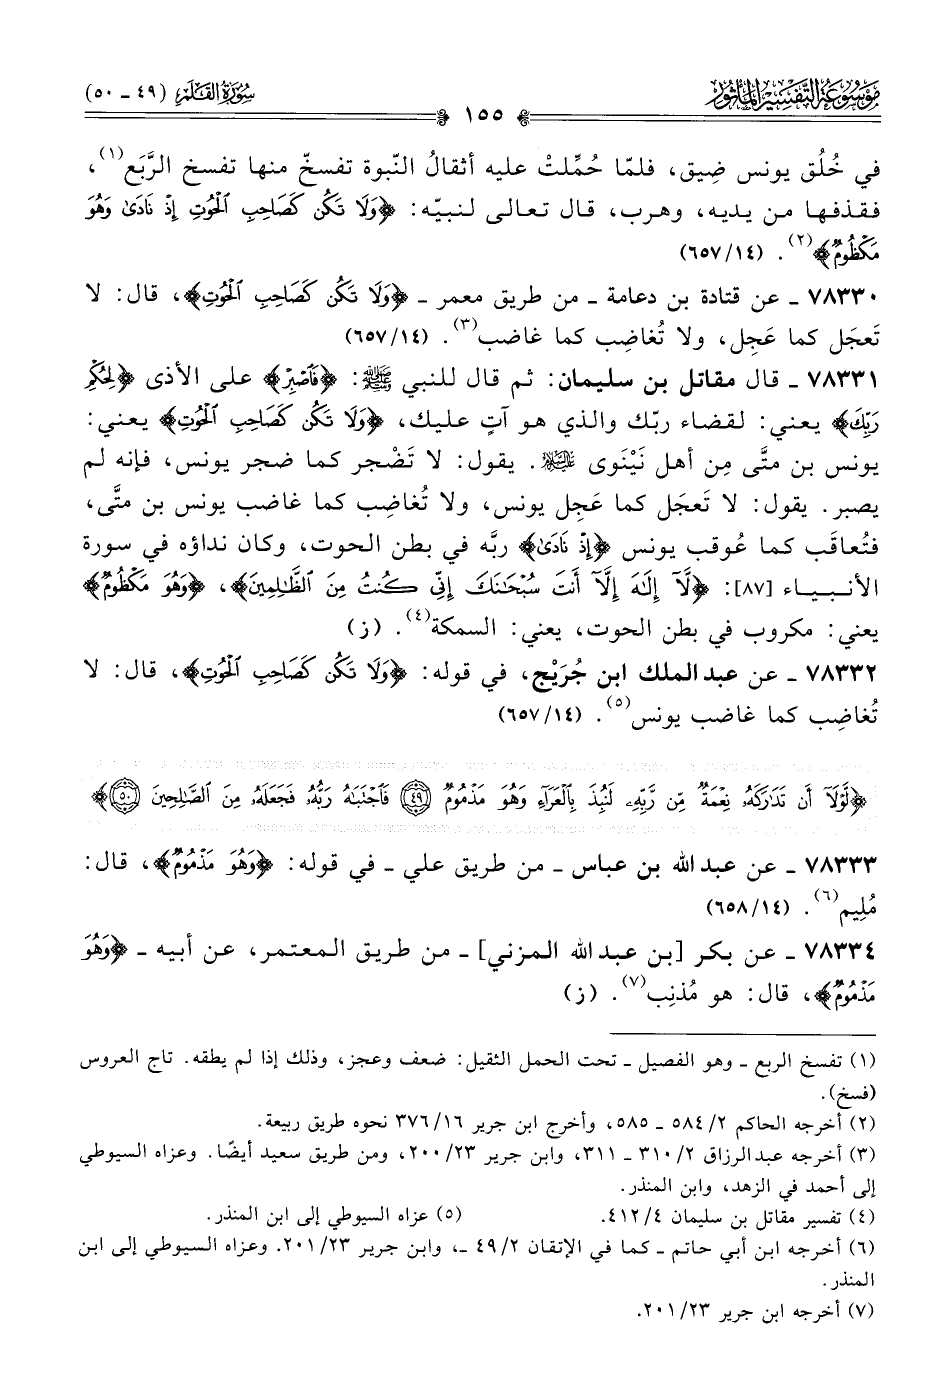 موسوعة التفسير المأثور
سورة القلم (٤٩ - ٥٠)
١٥٥
في خُلُق يونس ضِيق، فلمّا حُمِّلتْ عليه أثقالُ النّبوة تفسخّ منها تفسخ الرَّبَع(١)،
فقذفها من يديه، وهرب، قال تعالى لنبيّه: ﴿وَلَا تَكُن كَصَاحِبِ ٱلْحُوتِ إِذْ نَادَىٰ وَهُوَ
مَكْظُومٌ﴾(٢). (١٤/ ٦٥٧)
٧٨٣٣٠ - عن قتادة بن دعامة - من طريق معمر - ﴿وَلَا تَكُن كَصَاحِبِ ٱلْحُوتِ﴾، قال: لا
تَعجَل كما عَجِل، ولا تُغاضِب كما غاضب(٣). (١٤/ ٦٥٧)
٧٨٣٣١ - قال مقاتل بن سليمان: ثم قال للنبي ﷺ: ﴿فَٱصْبِرْ﴾ على الأذى ﴿لِحُكْمِ
رَبِّكَ﴾ يعني: لقضاء ربّك والذي هو آتٍ عليك، ﴿وَلَا تَكُن كَصَاحِبِ ٱلْحُوتِ﴾ يعني:
يونس بن متَّى مِن أهل نَيْنَوى عليه السلام. يقول: لا تَضْجر كما ضجر يونس، فإنه لم
يصبر. يقول: لا تَعجَل كما عَجِل يونس، ولا تُغاضِب كما غاضب يونس بن متَّى،
فتُعاقَب كما عُوقب يونس ﴿إِذْ نَادَىٰ﴾ ربَّه في بطن الحوت، وكان نداؤه في سورة
الأنبياء [٨٧]: ﴿لَّآ إِلَٰهَ إِلَّآ أَنتَ سُبْحَٰنَكَ إِنِّى كُنتُ مِنَ ٱلظَّٰلِمِينَ﴾، ﴿وَهُوَ مَكْظُومٌ﴾
يعني: مكروب في بطن الحوت، يعني: السمكة(٤). (ز)
٧٨٣٣٢ - عن عبد الملك ابن جُرَيْج، في قوله: ﴿وَلَا تَكُن كَصَاحِبِ ٱلْحُوتِ﴾، قال: لا
تُغاضِب كما غاضب يونس(٥). (١٤/ ٦٥٧)
﴿لَّوْلَآ أَن تَدَٰرَكَهُۥ نِعْمَةٌ مِّن رَّبِّهِۦ لَنُبِذَ بِٱلْعَرَآءِ وَهُوَ مَذْمُومٌ ٤٩ فَٱجْتَبَٰهُ رَبُّهُۥ فَجَعَلَهُۥ مِنَ ٱلصَّٰلِحِينَ ٥٠﴾
٧٨٣٣٣ - عن عبد الله بن عباس - من طريق علي - في قوله: ﴿وَهُوَ مَذْمُومٌ﴾، قال:
مُلِيم(٦). (١٤/ ٦٥٨)
٧٨٣٣٤ - عن بكر [بن عبد الله المزني] - من طريق المعتمر، عن أبيه - ﴿وَهُوَ
مَذْمُومٌ﴾، قال: هو مُذنِب(٧). (ز)
(١) تفسخ الربع - وهو الفصيل - تحت الحمل الثقيل: ضعف وعجز، وذلك إذا لم يطقه. تاج العروس
(فسخ).
(٢) أخرجه الحاكم ٢/ ٥٨٤ - ٥٨٥، وأخرج ابن جرير ١٦/ ٣٧٦ نحوه طريق ربيعة.
(٣) أخرجه عبد الرزاق ٢/ ٣١٠ - ٣١١، وابن جرير ٢٣/ ٢٠٠، ومن طريق سعيد أيضًا. وعزاه السيوطي
إلى أحمد في الزهد، وابن المنذر.
(٤) تفسير مقاتل بن سليمان ٤/ ٤١٢. (٥) عزاه السيوطي إلى ابن المنذر.
(٦) أخرجه ابن أبي حاتم - كما في الإتقان ٢/ ٤٩ -، وابن جرير ٢٣/ ٢٠١. وعزاه السيوطي إلى ابن
المنذر.
(٧) أخرجه ابن جرير ٢٣/ ٢٠١.